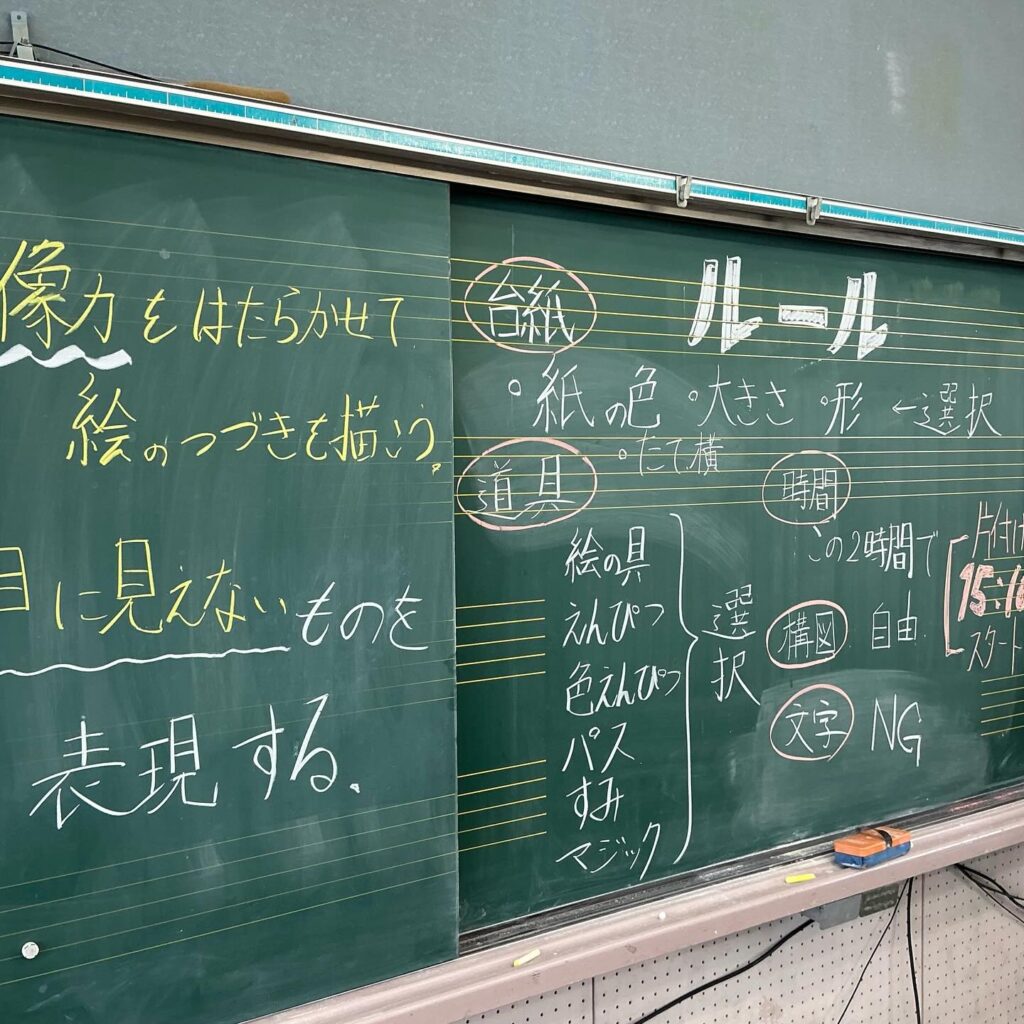 像力をはたらかせて
絵のつづきを描こう。
目に見えないものを
表現する.
ルール
台紙
・紙の色 ・大きさ ・形 ←選択
・たて、横
道具
絵の具
えんぴつ
色えんぴつ
パス
すみ
マジック
選択
時間
この2時間で
片付け
スタート
構図 自由.
文字 NG